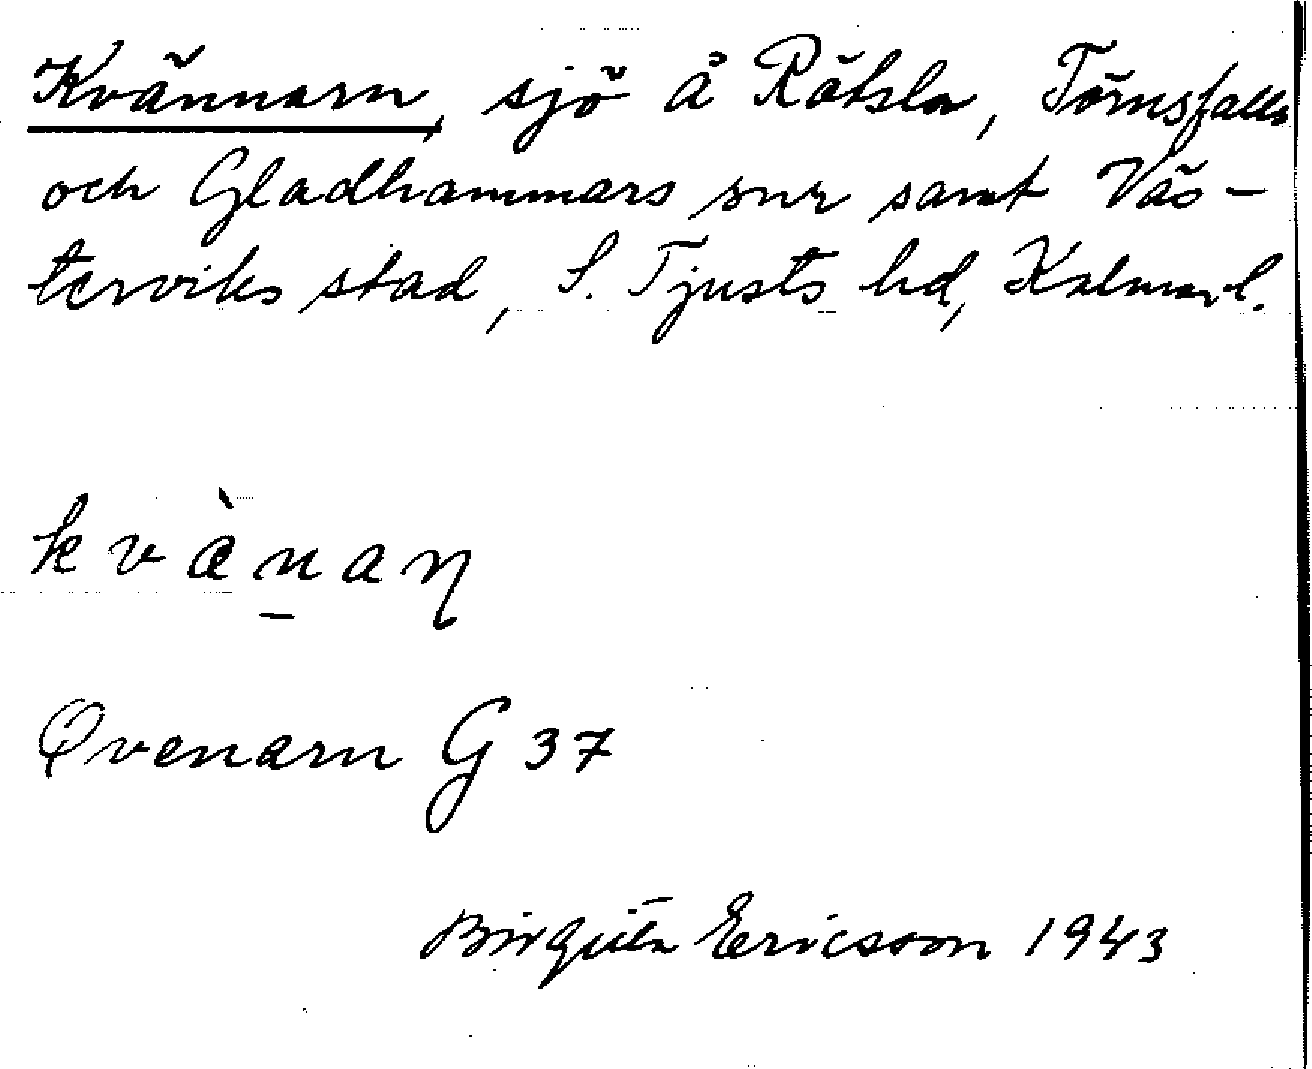 Kvännarn, sjö å Rätsla, Törnsfalls
och Gladhammars snr samt Väs-
terviks stad, S. Tjusts hd, Kalmar l.
kvæ̀n̠aɳ
Qvenarn G 37
Birgitta Ericsson 1943